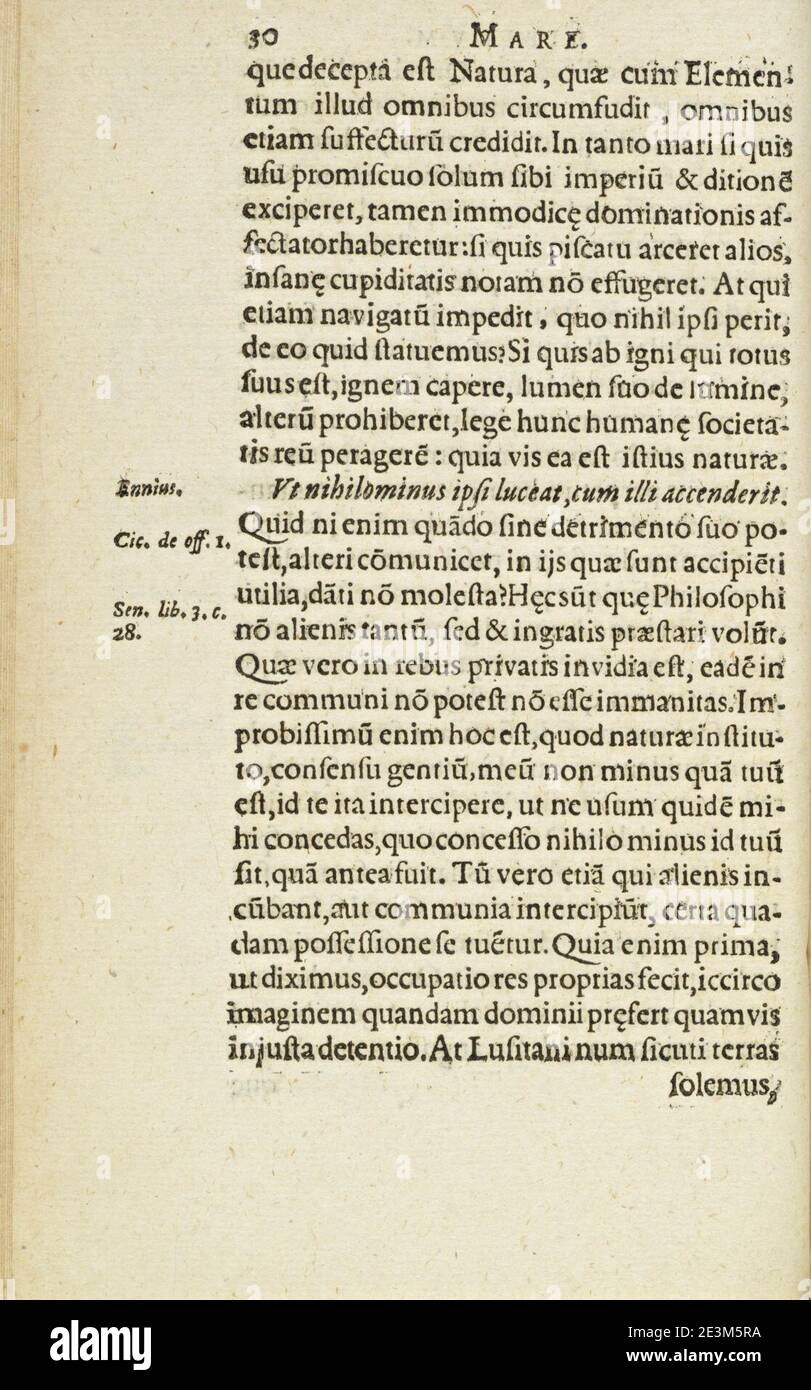 30 MARE.
que decepta est Natura, quæ cum Elemen-
tum illud omnibus circumfudit, omnibus
etiam suffecturũ credidit. In tanto mari si quis
usu promiscuo solum sibi imperiũ & ditionẽ
exciperet, tamen immodicę dominationis af-
fectator haberetur: si quis piscatu arceret alios,
insanę cupiditatis notam nõ effugeret. At qui
etiam navigatũ impedit, quo nihil ipsi perit,
de eo quid statuemus? Si quis ab igni qui totus
suus est, ignem capere, lumen suo de lumine,
alterũ prohiberet, lege hunc humanę societa-
tis reũ peragerẽ: quia vis ea est istius naturæ.
Ennius.
Vt nihilominus ipsi luceat, cum illi accenderit.
Quid ni enim quãdo sine detrimento suo po-
Cic. de off. 1.
test, alteri cõmunicet, in ijs quæ sunt accipiẽti
utilia, dãti nõ molesta? Hęc sũt quę Philosophi
Sen. lib. 3. c.
28.
nõ alienis tantũ, sed & ingratis præstari volũt.
Quæ vero in rebus privatis invidia est, eadẽ in
re communi nõ potest nõ esse immanitas. Im-
probissimũ enim hoc est, quod naturæ institu-
to, consensu gentiũ, meũ non minus quã tuũ
est, id te ita intercipere, ut ne usum quidẽ mi-
hi concedas, quo concesso nihilo minus id tuũ
sit, quã antea fuit. Tũ vero etiã qui alienis in-
cũbant, aut communia intercipiũt, certa qua-
dam possessione se tuẽtur. Quia enim prima,
ut diximus, occupatio res proprias fecit, iccirco
imaginem quandam dominii pręfert quamvis
injusta detentio. At Lusitani num sicuti terras
solemus,
alamy
Image ID: 2E3M5RA
www.alamy.com